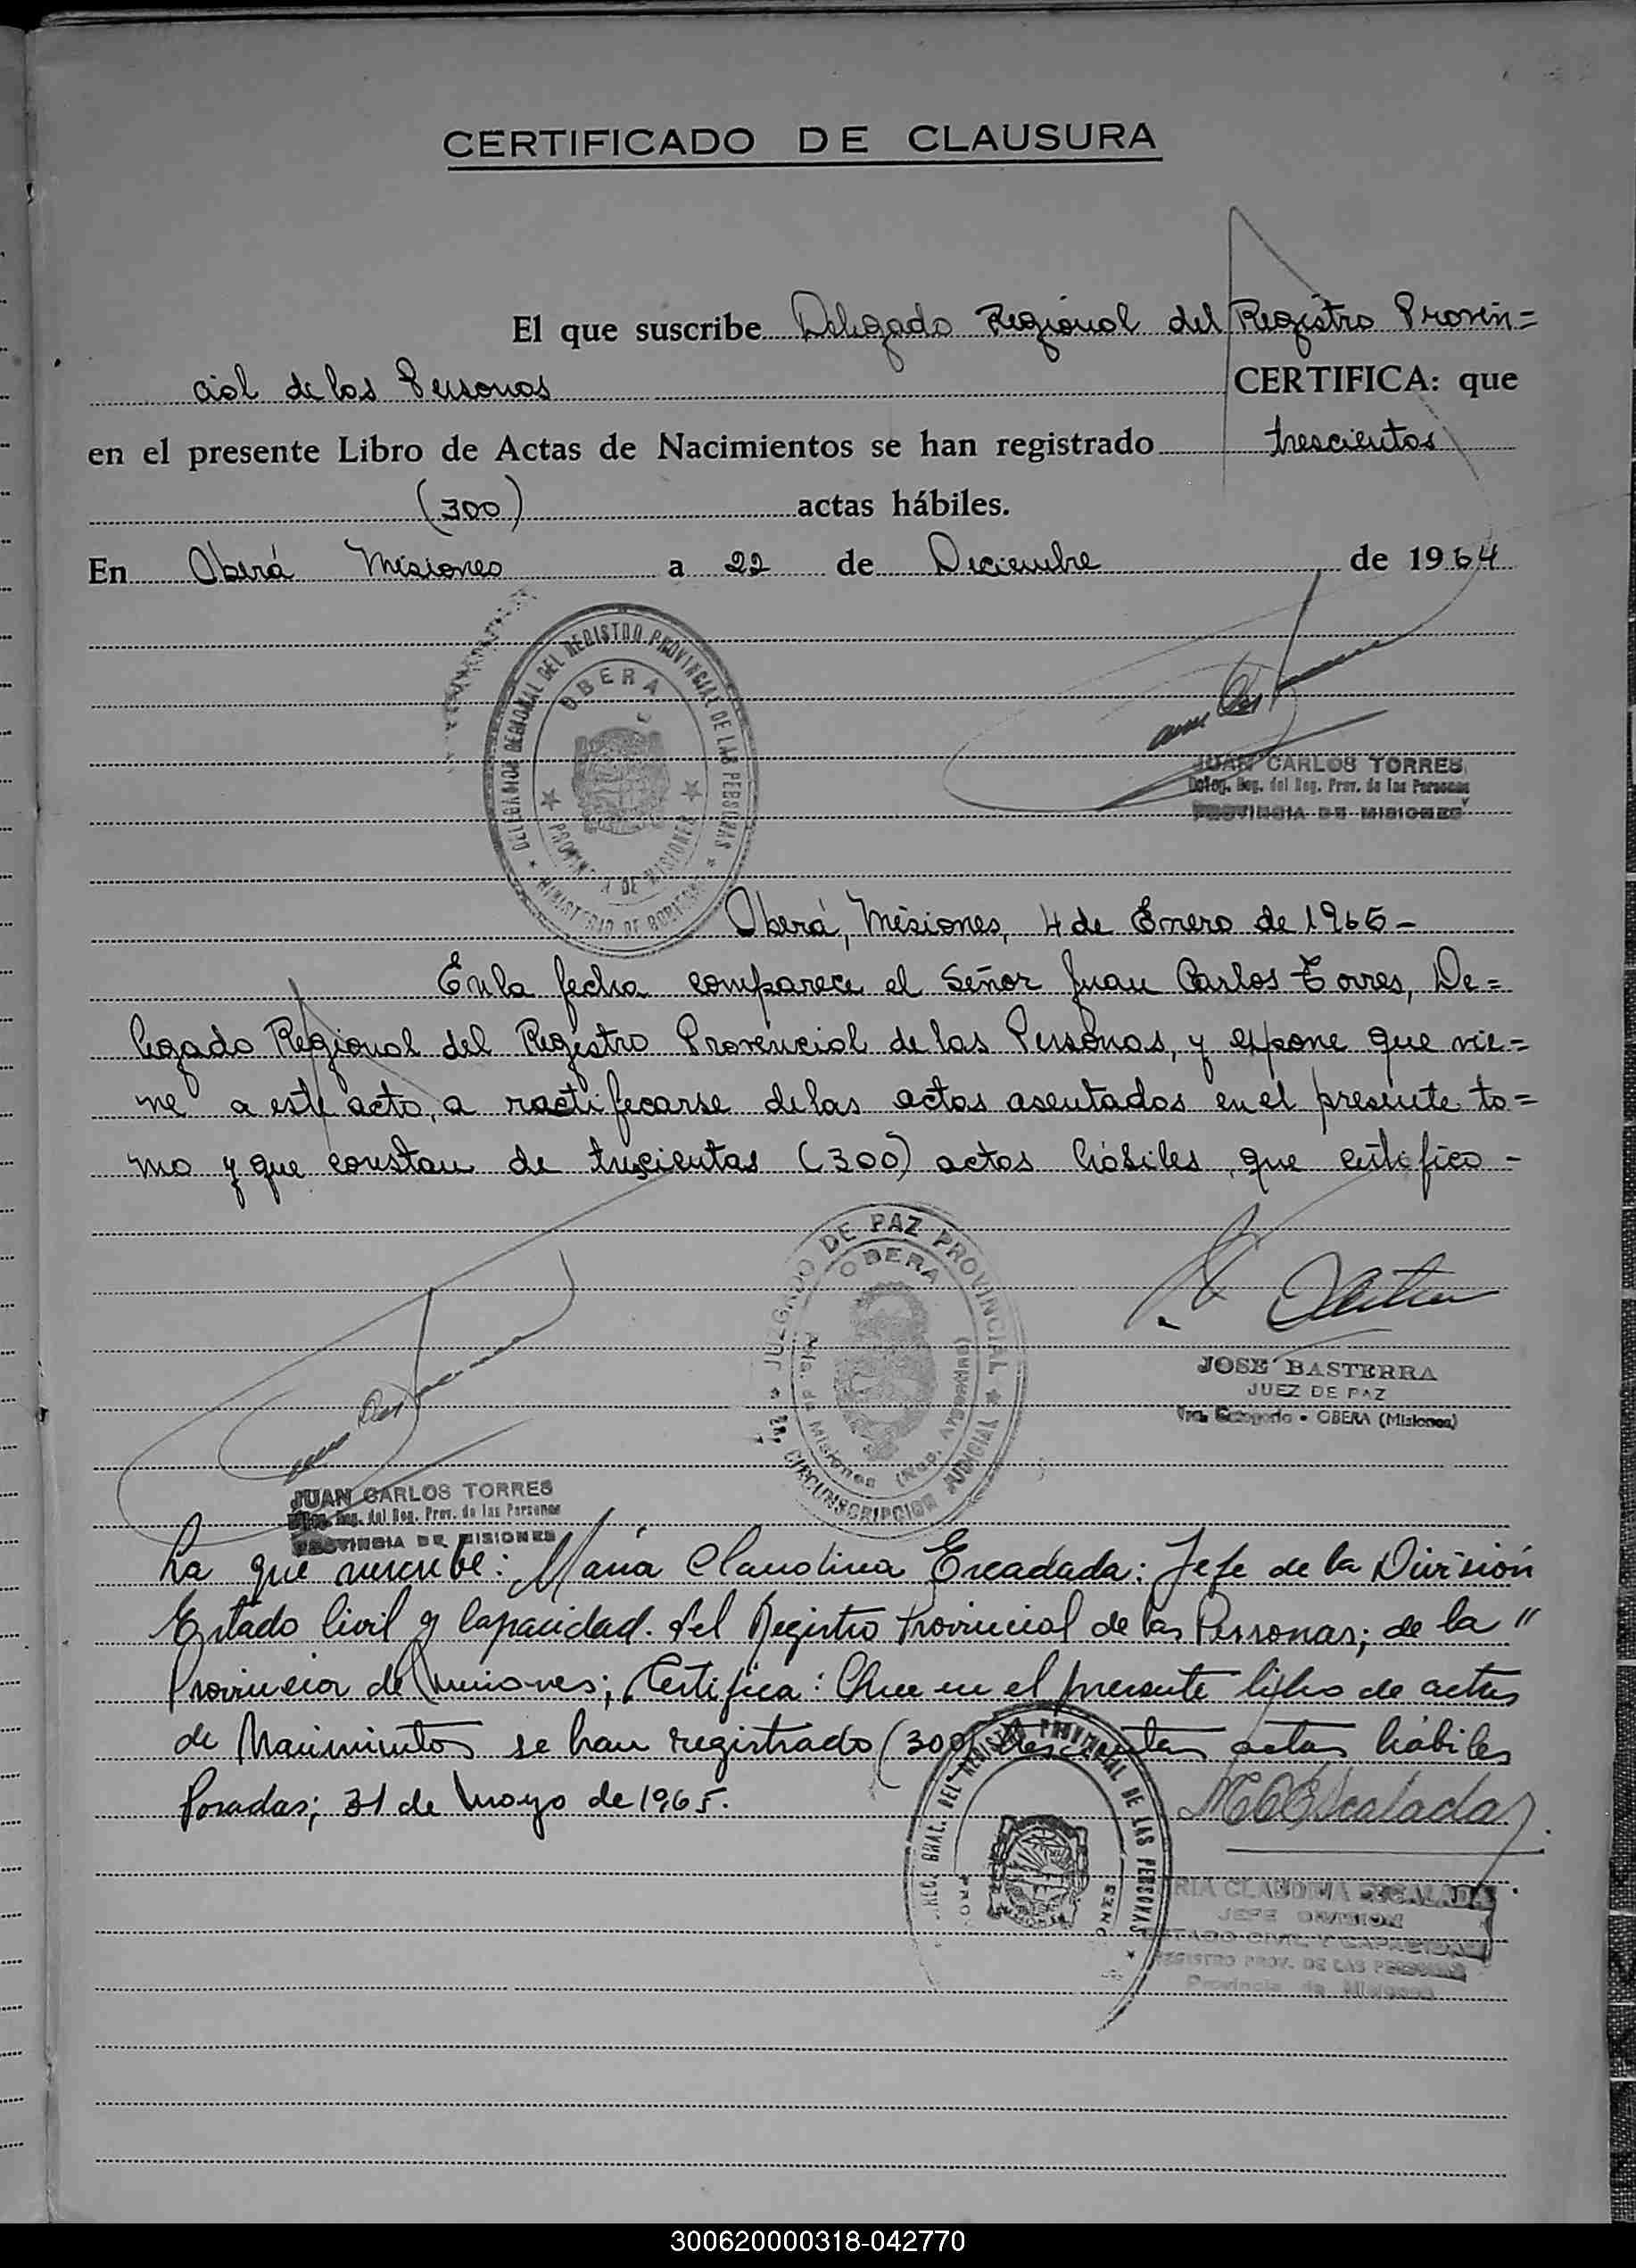 CERTIFICADO DE CLAUSURA
El que suscribe Delegado Regional del Registro Provin=
cial de las Personas CERTIFICA: que
en el presente Libro de Actas de Nacimientos se han registrado trescientos
(300) actas hábiles.
En Oberá Misiones a 22 de Diciembre de 1964
DELEGACION REGIONAL DEL REGISTRO PROVINCIAL DE LAS PERSONAS
OBERA
PROVINCIA DE MISIONES
MINISTERIO DE GOBIERNO
JUAN CARLOS TORRES
Deleg. Reg. del Reg. Prov. de las Personas
PROVINCIA DE MISIONES
Oberá, Misiones, 4 de Enero de 1965-
En la fecha comparece el Señor Juan Carlos Torres, De=
legado Regional del Registro Provincial de las Personas, y expone que vie=
ne a este acto, a ractificarse de las actas asentados en el presente to=
mo y que constan de trescientas (300) actas hábiles, que certifico-
JUZGADO DE PAZ PROVINCIAL
OBERA
Pcia. de Misiones (Rep. Argentina)
CIRCUNSCRIPCION JUDICIAL
JOSE BASTERRA
JUEZ DE PAZ
OBERA (Misiones)
JUAN CARLOS TORRES
Reg. del Reg. Prov. de las Personas
PROVINCIA DE MISIONES
La que suscribe: María Claudina Escalada: Jefe de la División
Estado Civil y Capacidad. del Registro Provincial de las Personas; de la "
Provincia de Misiones; Certifica: Que en el presente libro de actas
de Nacimientos se han registrado (300) trescientas actas hábiles
Posadas; 31 de Mayo de 1965.
MCEscalada
DIREC. GRAL. DEL REGISTRO PROVINCIAL DE LAS PERSONAS
RIA CLAUDINA ESCALADA
JEFE DIVISION
TADO CIVIL Y CAPACIDAD
REGISTRO PROV. DE LAS PERSONAS
Provincia de Misiones
300620000318-042770